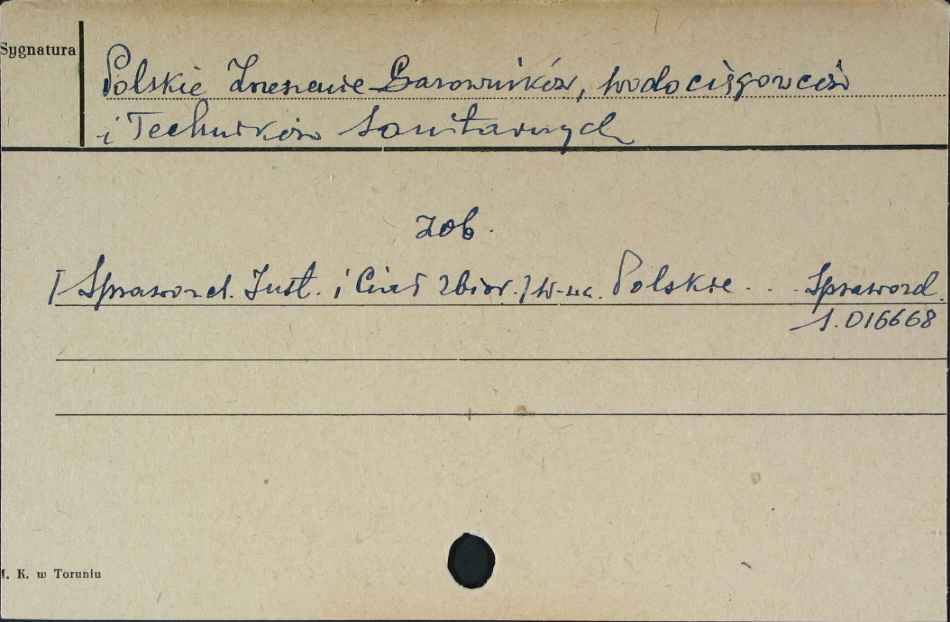 Sygnatura
Polskie Zrzeszenie Gazowników, Wodociągowców
i Techników Sanitarnych
zob.
[Sprawozd. Inst. i Ciał Zbior.] W-wa. Polskie... Sprawozd.
1.016668
I. K. w Toruniu